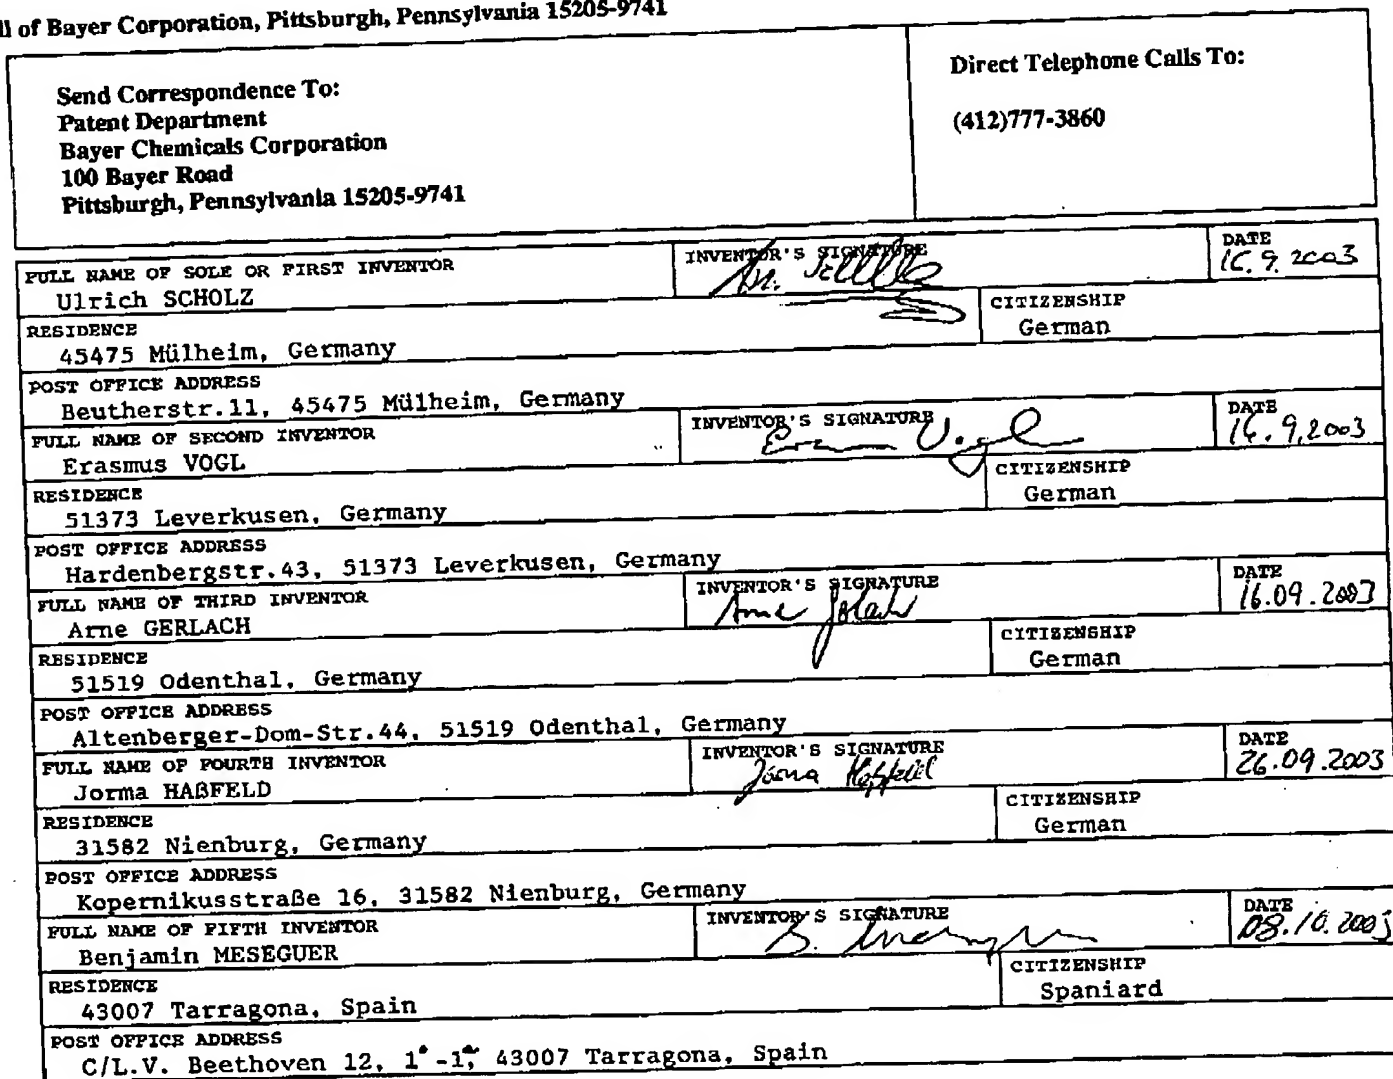 ll of Bayer Corporation, Pittsburgh, Pennsylvania 15205-9741
Send Correspondence To:
Patent Department
Bayer Chemicals Corporation
100 Bayer Road
Pittsburgh, Pennsylvania 15205-9741
Direct Telephone Calls To:
(412)777-3860
FULL NAME OF SOLE OR FIRST INVENTOR
Ulrich SCHOLZ
INVENTOR'S SIGNATURE
DATE
16.9.2003
RESIDENCE
45475 Mülheim, Germany
CITIZENSHIP
German
POST OFFICE ADDRESS
Beutherstr.11, 45475 Mülheim, Germany
FULL NAME OF SECOND INVENTOR
Erasmus VOGL
INVENTOR'S SIGNATURE
DATE
16.9.2003
RESIDENCE
51373 Leverkusen, Germany
CITIZENSHIP
German
POST OFFICE ADDRESS
Hardenbergstr.43, 51373 Leverkusen, Germany
FULL NAME OF THIRD INVENTOR
Arne GERLACH
INVENTOR'S SIGNATURE
Arne Gerlach
DATE
16.09.2003
RESIDENCE
51519 Odenthal, Germany
CITIZENSHIP
German
POST OFFICE ADDRESS
Altenberger-Dom-Str.44, 51519 Odenthal, Germany
FULL NAME OF FOURTH INVENTOR
Jorma HAßFELD
INVENTOR'S SIGNATURE
Jorma Haßfeld
DATE
26.09.2003
RESIDENCE
31582 Nienburg, Germany
CITIZENSHIP
German
POST OFFICE ADDRESS
Kopernikusstraße 16, 31582 Nienburg, Germany
FULL NAME OF FIFTH INVENTOR
Benjamin MESEGUER
INVENTOR'S SIGNATURE
DATE
08.10.2003
RESIDENCE
43007 Tarragona, Spain
CITIZENSHIP
Spaniard
POST OFFICE ADDRESS
C/L.V. Beethoven 12, 1ª-1ª, 43007 Tarragona, Spain